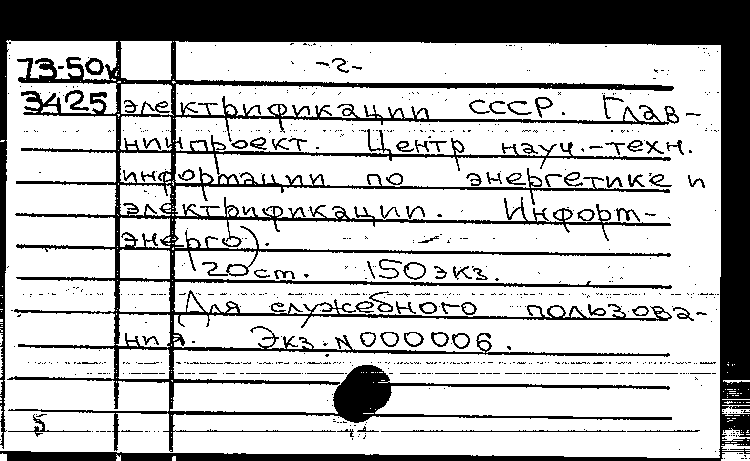 73-50к -2-
3425 электрификации СССР. Глав-
ниипроект. Центр науч.-техн.
информации по энергетике и
электрификации. Информ-
энерго).
120 ст. 150 экз.
Для служебного пользова-
ния. Экз. N 000006.
5